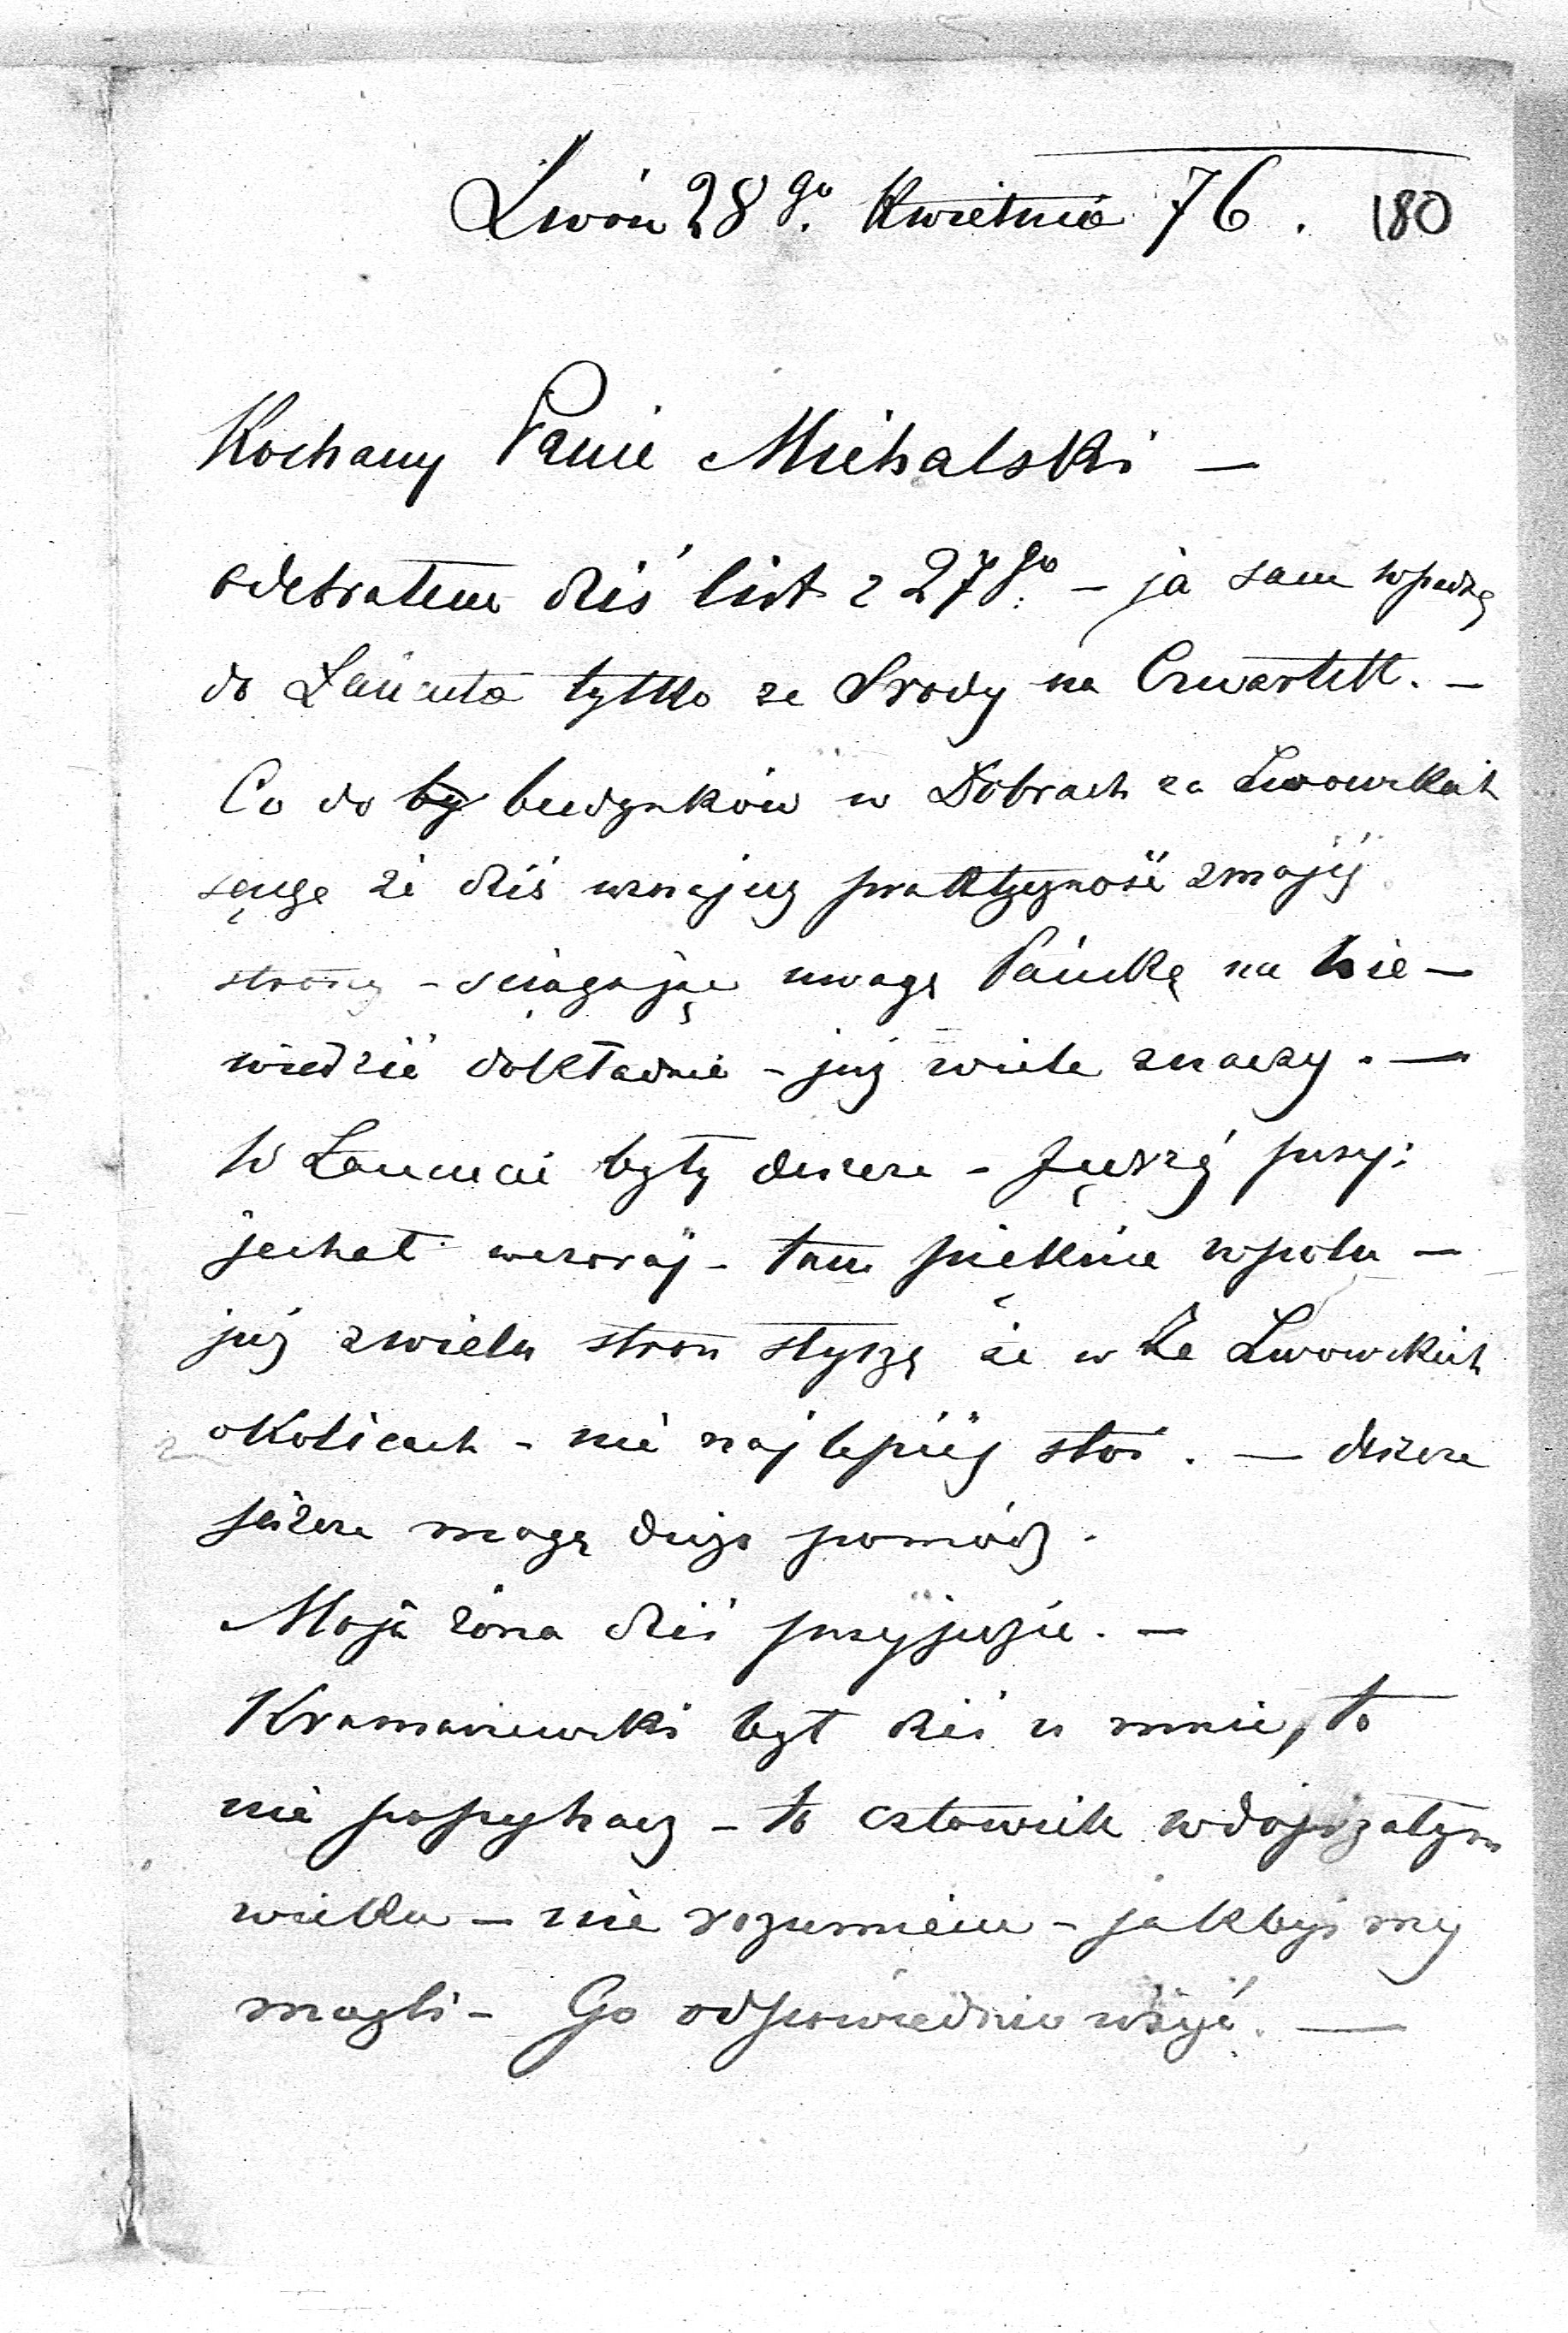 Lwów 28go. Kwietnia 76. 180
Kochany Panie Michalski —
odebrałem dziś list z 27go. – ja sam wpadnę
do Łańcuta tylko ze Srody na Czwartek. —
Co do by budynków w Dobrach za Lwowskich
sądzę że dziś praktyczność z mojej
strony – sciągając uwagę Pańską na
wiedzieć dokładnie – już wiele znaczy. —
W Łancucie były deszcze – Jędrzej przy:
jechał wczoraj – tam pięknie w polu —
już z wielu stron słyszę że w Ze Lwowskich
okolicach – nie najlepiej stoi. — deszcze
jeszcze mogą dużo pomódz.
Moja żona dziś przyjedzie. —
był dziś u mnie, to
nie popychacz – to człowiek w dojrzałym
wieku — nie rozumiem – jakbyś my
mogli – Go odpowiednio użyć. —